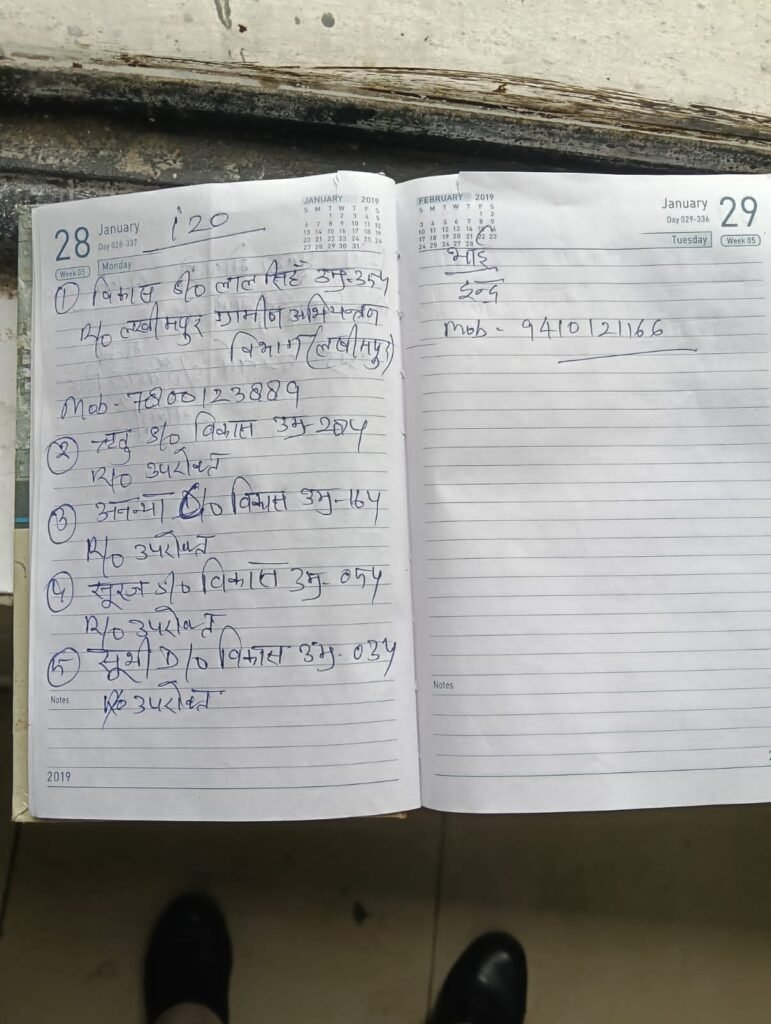 28 January
Day 028-337
Week 05
Monday
i20
JANUARY 2019
S M T W T F S
1 2 3 4 5
6 7 8 9 10 11 12
13 14 15 16 17 18 19
20 21 22 23 24 25 26
27 28 29 30 31
① विकास S/o लाल सिंह उम्र-35y
R/o लखीमपुर ग्रामीन अभियन्त्रन
विभाग (लखीमपुर)
Mob- 7800123889
② S/o विकास उम्र-
R/o उपरोक्त
③ अनन्या D/o विकास उम्र-16y
R/o उपरोक्त
④ सूरज S/o विकास उम्र- 05y
R/o उपरोक्त
⑤ D/o विकास उम्र- 03y
R/o उपरोक्त
Notes
2019
FEBRUARY 2019
S M T W T F S
1 2
3 4 5 6 7 8 9
10 11 12 13 14 15 16
17 18 19 20 21 22 23
24 25 26 27 28
January 29
Day 029-336
Tuesday
Week 05
भाई
इन्द्र
Mob - 9410121166
Notes